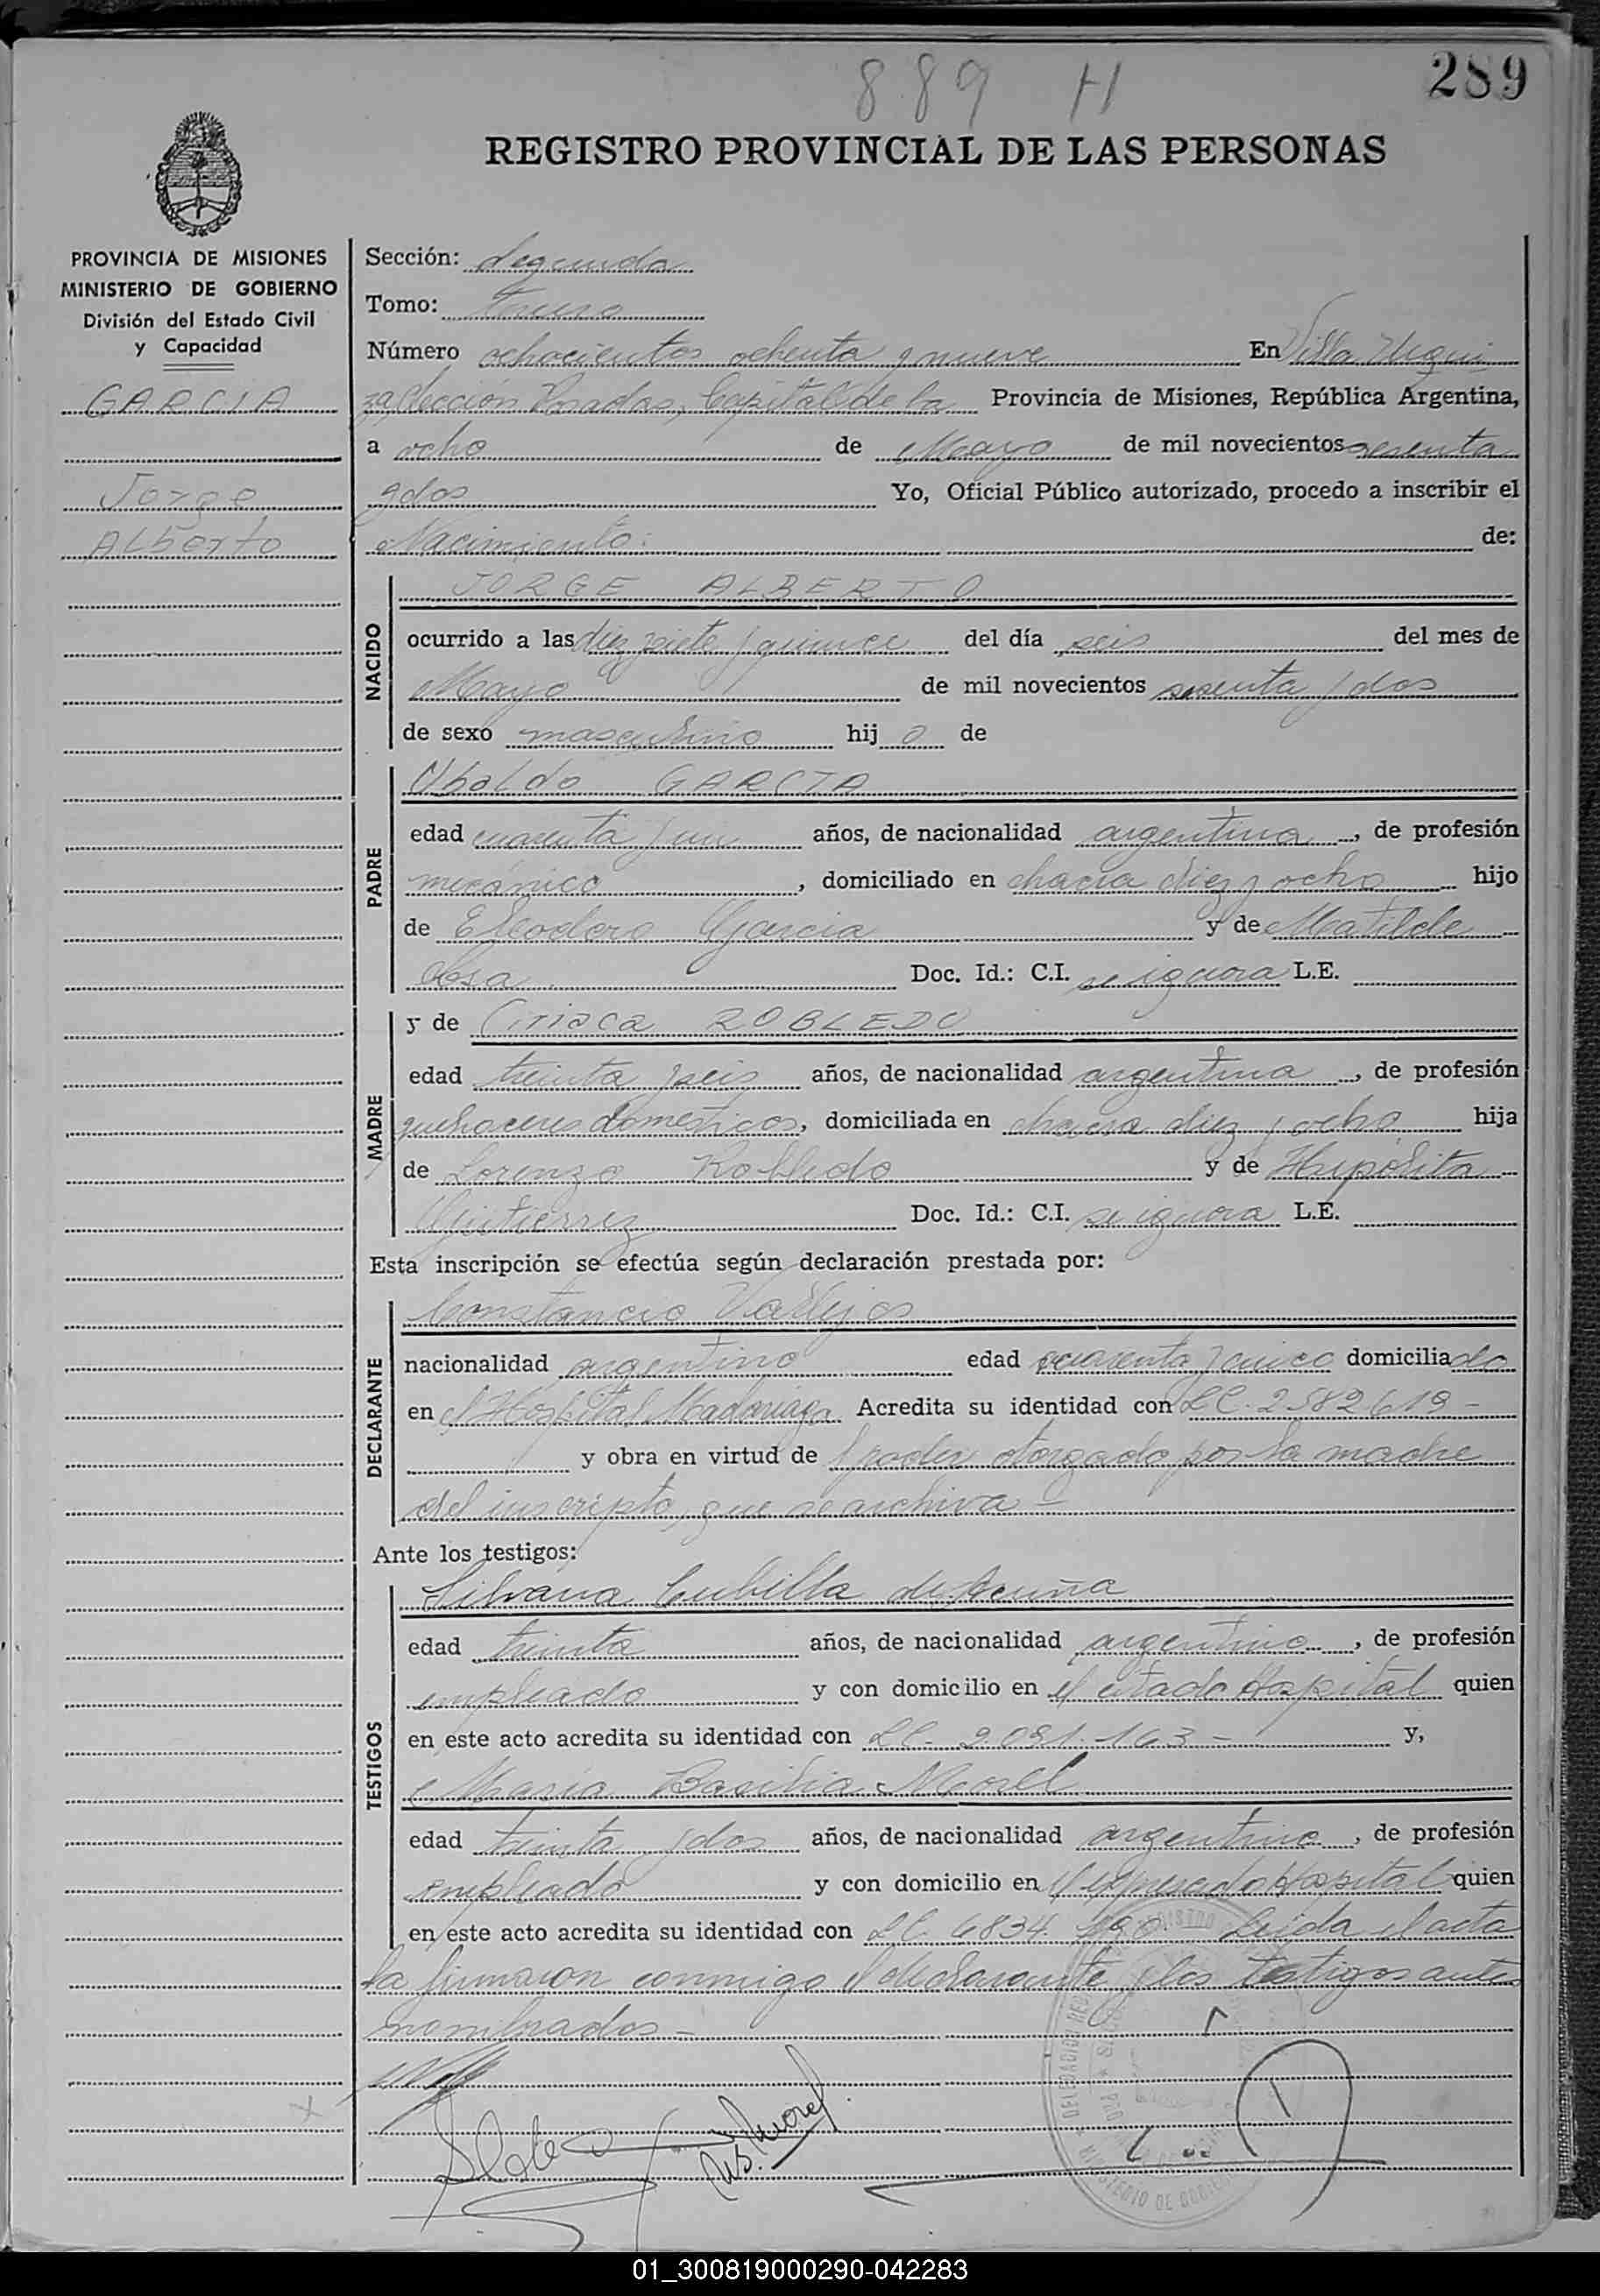 889 H
289
REGISTRO PROVINCIAL DE LAS PERSONAS
PROVINCIA DE MISIONES
MINISTERIO DE GOBIERNO
División del Estado Civil
y Capacidad
GARCIA
Jorge
Alberto
Sección: Segunda
Tomo: Tercero
Número ochocientos ochenta y nueve En Villa Urqui
za, Sección Posadas, Capital de la Provincia de Misiones, República Argentina,
a ocho de Mayo de mil novecientos sesenta
y dos Yo, Oficial Público autorizado, procedo a inscribir el
Nacimiento: de:
NACIDO
JORGE ALBERTO
ocurrido a las diez y siete y quince del día seis del mes de
Mayo de mil novecientos sesenta y dos
de sexo masculino hij o de
PADRE
Ubaldo GARCIA
edad cuarenta y un años, de nacionalidad argentina, de profesión
mecánico, domiciliado en chacra diez y ocho hijo
de Eleodoro Garcia y de Matilde
Doc. Id.: C.I. se ignora L.E.
MADRE
y de Ciriaca ROBLEDO
edad treinta y seis años, de nacionalidad argentina, de profesión
quehaceres domesticos, domiciliada en chacra diez y ocho hija
de Lorenzo Robledo y de Hipólita
Gutierrez Doc. Id.: C.I. se ignora L.E.
Esta inscripción se efectúa según declaración prestada por:
DECLARANTE
Constancio Vallejos
nacionalidad argentino edad cuarenta y cinco domiciliado
en el Hospital Madariaga Acredita su identidad con L C. 2582619 -
y obra en virtud de poder otorgado por la madre
del inscripto, que se archiva -
Ante los testigos:
TESTIGOS
Silvana Cubilla de Acuña
edad treinta años, de nacionalidad argentina, de profesión
empleado y con domicilio en el citado Hospital quien
en este acto acredita su identidad con LC. 2.091.163 - y,
Maria Basilia Morel
edad treinta y dos años, de nacionalidad argentina, de profesión
empleado y con domicilio en el expresado Hospital quien
en este acto acredita su identidad con LC. 6834. Leida el acta
la firmaron conmigo el declarante y los testigos antes
nombrados -
M.B. Morel
01_300819000290-042283